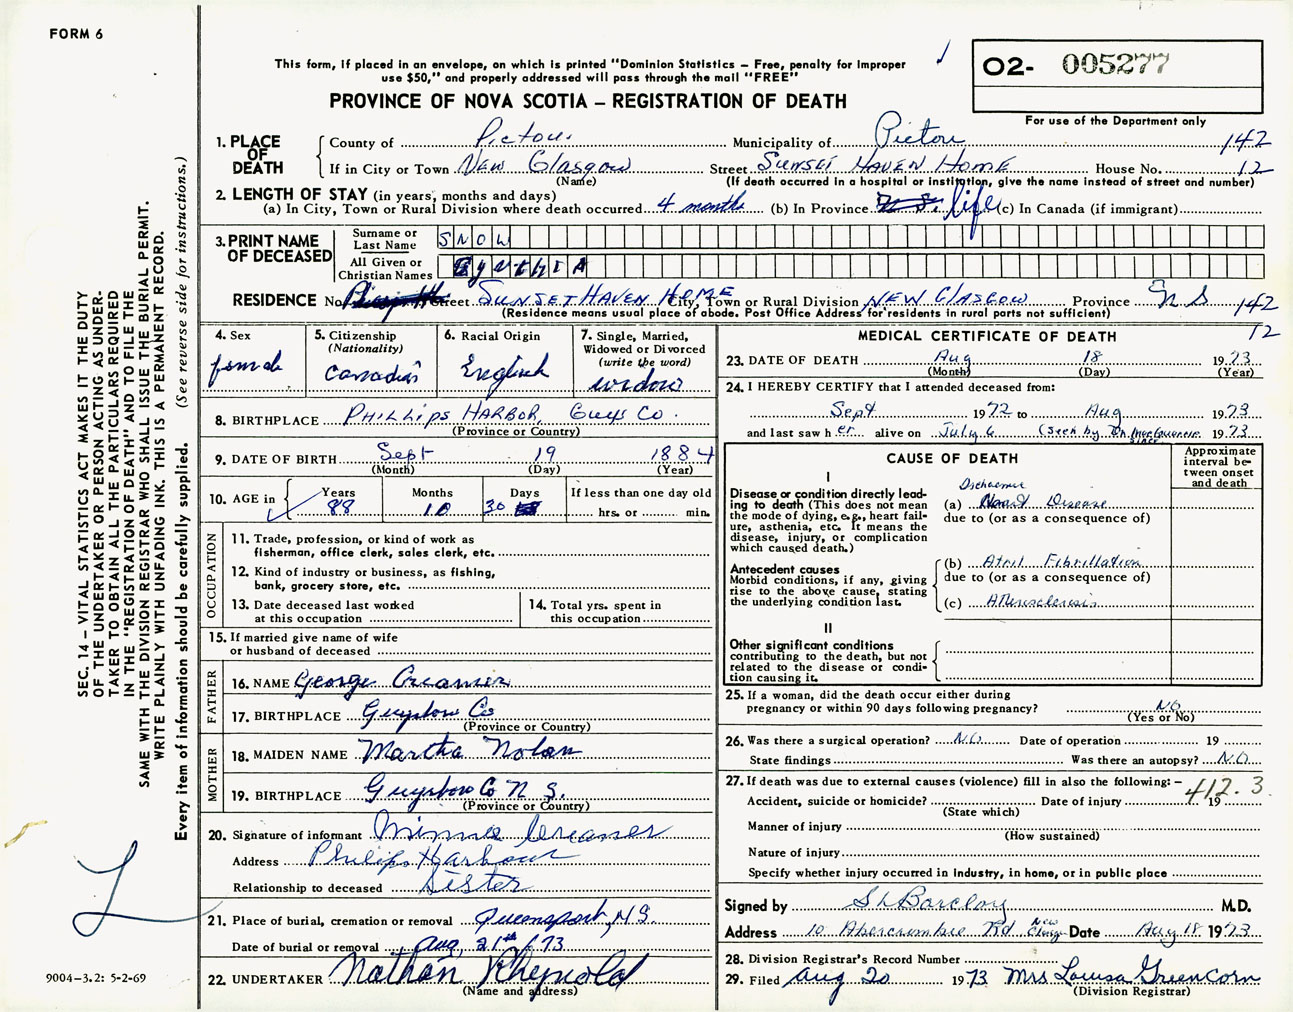 FORM 6
This form, if placed in an envelope, on which is printed "Dominion Statistics – Free, penalty for improper
use $50," and properly addressed will pass through the mail "FREE"
O2- 005277
PROVINCE OF NOVA SCOTIA – REGISTRATION OF DEATH
For use of the Department only
1. PLACE OF DEATH County of Pictou. Municipality of Pictou 142
If in City or Town New Glasgow Street Sunset Haven Home House No. 12
(Name) (If death occurred in a hospital or institution, give the name instead of street and number)
2. LENGTH OF STAY (in years, months and days)
(a) In City, Town or Rural Division where death occurred 4 months (b) In Province life (c) In Canada (if immigrant)
3. PRINT NAME OF DECEASED
Surname or Last Name SNOW
All Given or Christian Names CynthiA
RESIDENCE No. Street SUNSET HAVEN HOME City, Town or Rural Division NEW GLASGOW Province N S 142
(Residence means usual place of abode. Post Office Address for residents in rural parts not sufficient) 12
4. Sex female
5. Citizenship (Nationality) Canadian
6. Racial Origin English
7. Single, Married, Widowed or Divorced (write the word) widow
8. BIRTHPLACE PHILLIPS HARBOR, Guys Co.
(Province or Country)
9. DATE OF BIRTH Sept 19 1884
(Month) (Day) (Year)
10. AGE in Years 88 Months 10 Days 30 If less than one day old
hrs. or min.
OCCUPATION
11. Trade, profession, or kind of work as
fisherman, office clerk, sales clerk, etc.
12. Kind of industry or business, as fishing,
bank, grocery store, etc.
13. Date deceased last worked
at this occupation
14. Total yrs. spent in
this occupation
15. If married give name of wife
or husband of deceased
FATHER
16. NAME George Creamer
17. BIRTHPLACE Guysboro Co
(Province or Country)
MOTHER
18. MAIDEN NAME Martha Nolan
19. BIRTHPLACE Guysboro Co N S.
(Province or Country)
20. Signature of informant Minnie Creamer
Address Philips Harbour
Relationship to deceased Sister
21. Place of burial, cremation or removal Queensport, N.S.
Date of burial or removal Aug, 21st /73
22. UNDERTAKER Nathan Rheynold
(Name and address)
MEDICAL CERTIFICATE OF DEATH
23. DATE OF DEATH Aug 18 1973
(Month) (Day) (Year)
24. I HEREBY CERTIFY that I attended deceased from:
Sept 1972 to Aug 1973
and last saw her alive on July 6 (seen by Dr. 1973
CAUSE OF DEATH
Approximate interval between onset and death
I
Disease or condition directly leading to death (This does not mean the mode of dying, e.g., heart failure, asthenia, etc. It means the disease, injury, or complication which caused death.)
(a) Ischaemic Heart Disease
due to (or as a consequence of)
Antecedent causes
Morbid conditions, if any, giving rise to the above cause, stating the underlying condition last.
(b) Atril Fibrillation
due to (or as a consequence of)
(c) Atherosclerosis
II
Other significant conditions
contributing to the death, but not related to the disease or condition causing it.
25. If a woman, did the death occur either during
pregnancy or within 90 days following pregnancy? NO
(Yes or No)
26. Was there a surgical operation? NO Date of operation 19
State findings Was there an autopsy? NO
27. If death was due to external causes (violence) fill in also the following: –
412.3
Accident, suicide or homicide? Date of injury 19
(State which)
Manner of injury
(How sustained)
Nature of injury
Specify whether injury occurred in Industry, in home, or in public place
Signed by Barclay M.D.
Address 10 Abercrombie Rd New Glasgow Date Aug 18 1973
28. Division Registrar's Record Number
29. Filed Aug 20 1973 Mrs Louisa Greencorn
(Division Registrar)
SEC. 14 – VITAL STATISTICS ACT MAKES IT THE DUTY
OF THE UNDERTAKER OR PERSON ACTING AS UNDER-
TAKER TO OBTAIN ALL THE PARTICULARS REQUIRED
IN THE "REGISTRATION OF DEATH" AND TO FILE THE
SAME WITH THE DIVISION REGISTRAR WHO SHALL ISSUE THE BURIAL PERMIT.
WRITE PLAINLY WITH UNFADING INK. THIS IS A PERMANENT RECORD.
Every item of information should be carefully supplied. (See reverse side for instructions.)
9004-3.2: 5-2-69